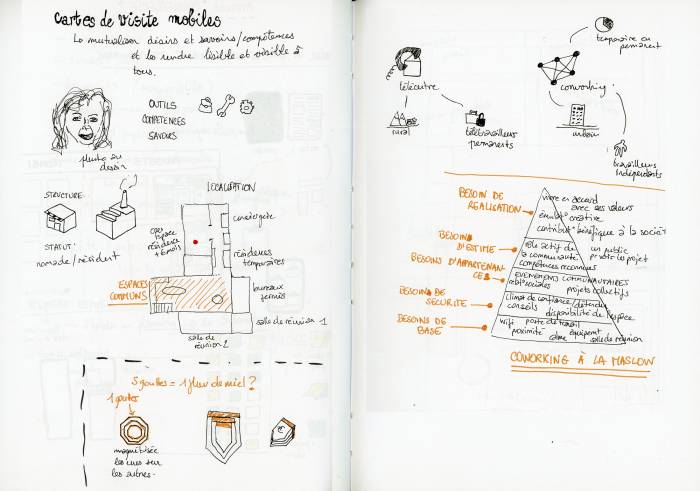 Cartes de visite mobiles
mutualiser désirs et savoirs/compétences
et les rendre lisible et visible à
tous.
OUTILS
COMPÉTENCES
SAVOIRS
photo ou
dessin
STRUCTURE
STATUT
nomade/résident
LOCALISATION
conciergerie
open
espace
résidence
résidences
temporaires
ESPACES
COMMUNS
bureaux
fermés
salle de réunion 1
salle de
réunion 2
5 gouttes = 1 fleur de miel ?
1 goutte
magnétisée
les unes sur
les autres.
temporaire ou
permanent
télécentre
coworking
rural
télétravailleurs
permanents
urbain
travailleurs
indépendants
BESOIN DE
REALISATION
vivre en accord
avec ses valeurs
créative
bénéfique à la société
BESOINS
D'ESTIME
rôle actif de
un public
la communauté
projet
compétences reconnues
BESOINS D'APPARTENAN-
CES
EVENEMENTS COMMUNAUTAIRES
sociales projets collectifs
BESOINS DE
SECURITE
climat de confiance/détendu
conseils disponibilité de l'espace
BESOINS
DE BASE
wifi poste de travail
proximité calme équipemt salle de réunion
COWORKING À LA MASLOW